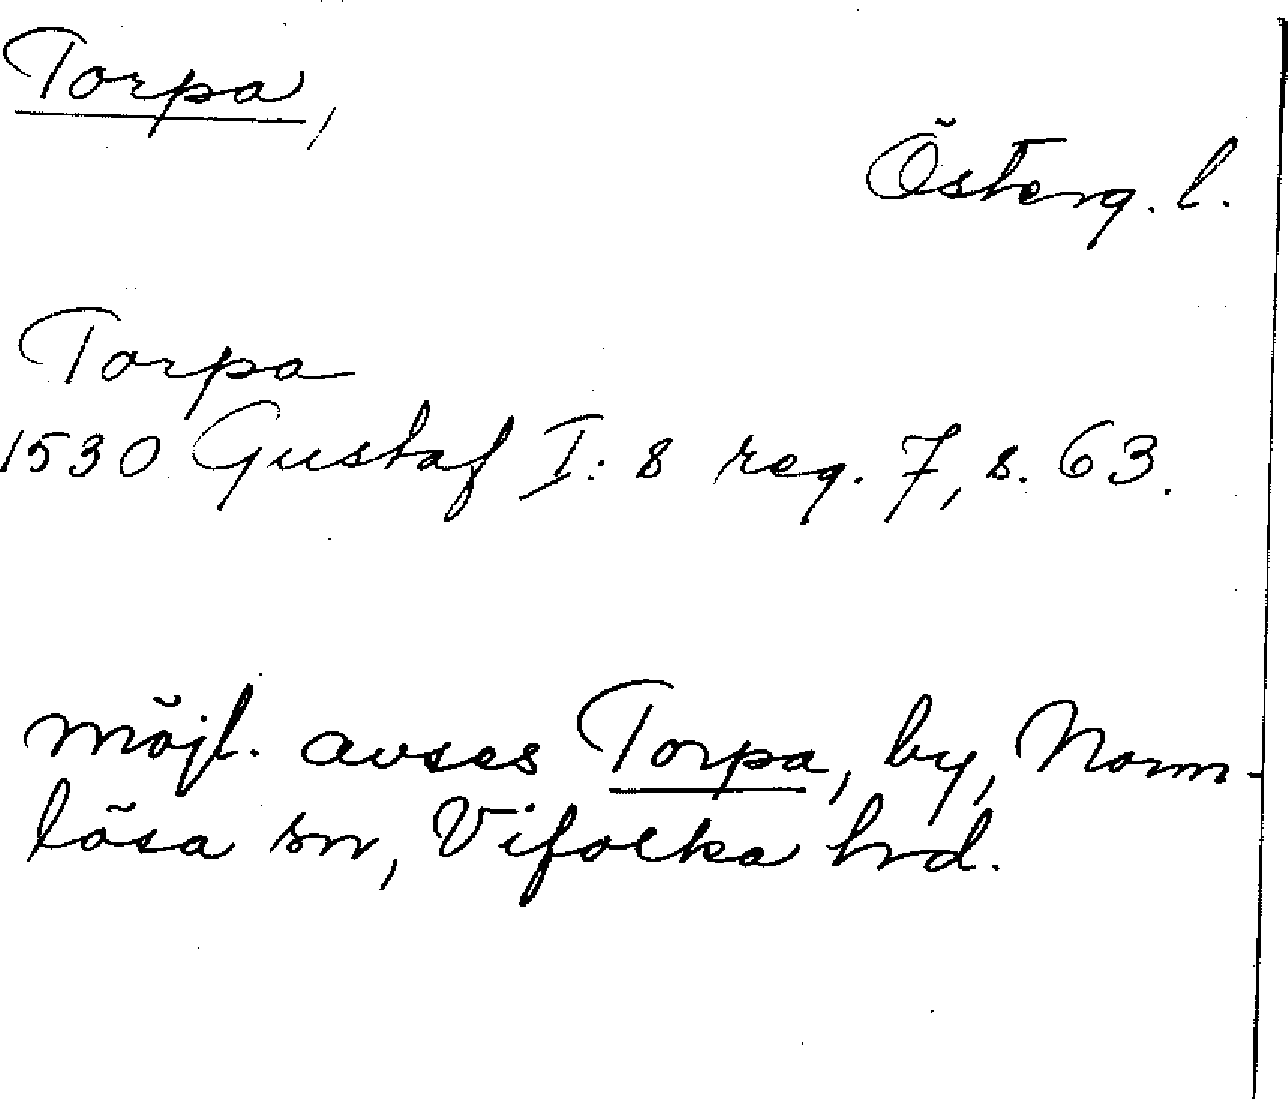 Torpa,
Österg. l.
Torpa
1530 Gustaf I:s reg. 7, s. 63.
möjl. avses Torpa, by, Norm-
lösa sn, Vifolka hrd.